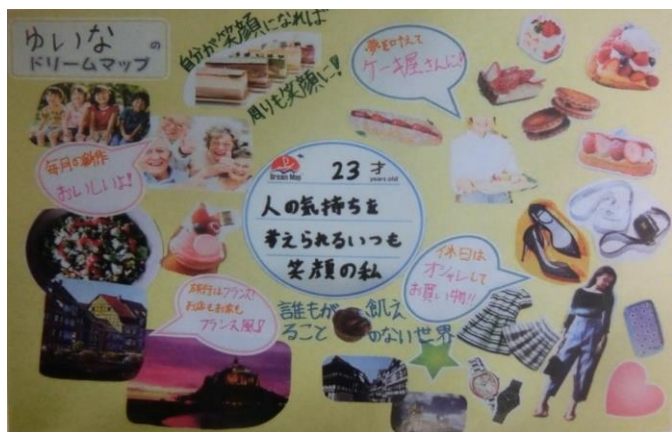 ゆいなの
ドリームマップ
自分が笑顔になれば
周りも笑顔に!
夢を叶えて
ケーキ屋さんに!
毎月の新作
おいしいよ!
Dream Map
23才
years old
人の気持ちを
考えられるいつも
笑顔の私
休日は
オシャレして
お買い物!!
旅行はフランス!
お店もお家も
フランス風!!
誰もが飢え
ることのない世界